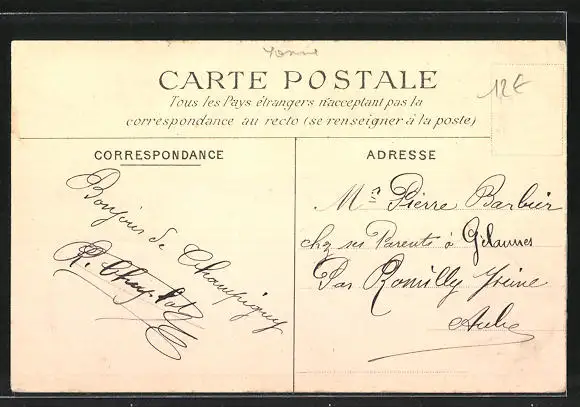 Yonne
CARTE POSTALE
Tous les Pays étrangers n'acceptant pas la
correspondance au recto (se renseigner à la poste)
12€
CORRESPONDANCE
Bonjour de Champigny
R.
ADRESSE
Mr Pierre Barbier
chez ses Parents à Gélannes
Par Romilly s/Seine
Aube